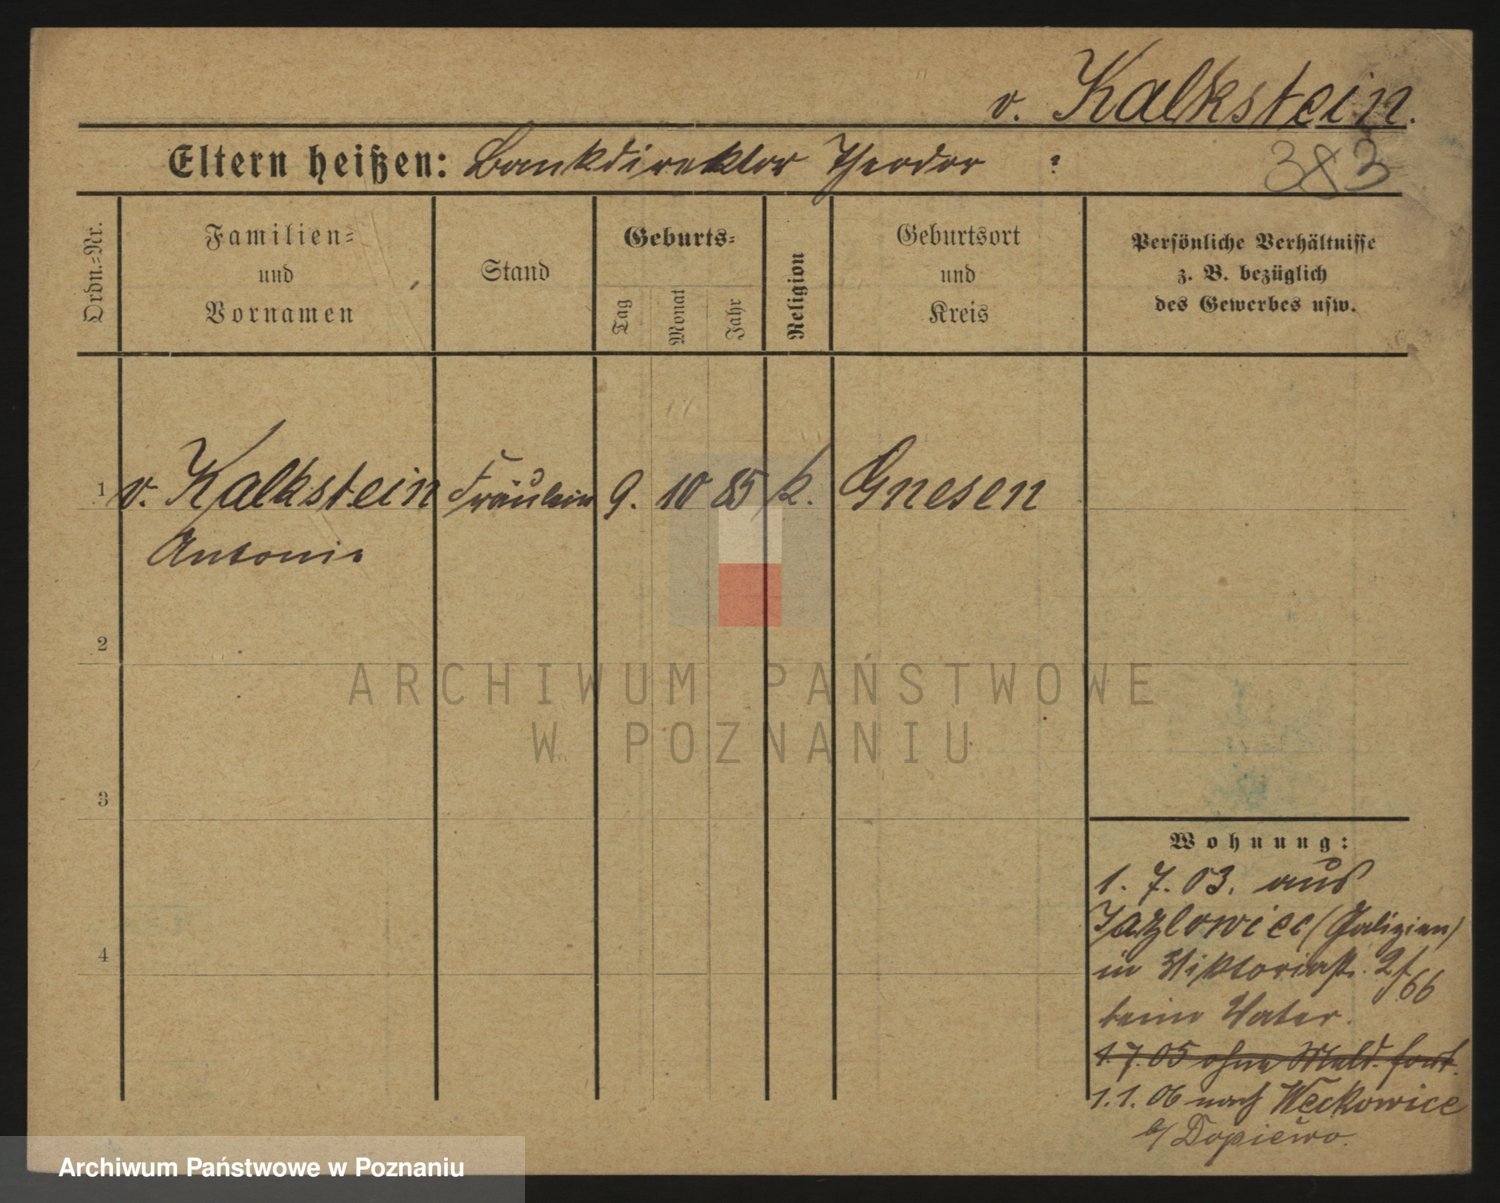 v. Kalkstein.
Eltern heißen: Bankdirektor Theodor :
383
Ordn.=Nr.
Familien=
und
Vornamen
Stand
Geburts=
Tag
Monat
Jahr
Religion
Geburtsort
und
Kreis
Persönliche Verhältnisse
z. B. bezüglich
des Gewerbes usw.
1 v. Kalkstein Fräulein 9. 10 85 k. Gnesen
Antonie
2
3
4
Wohnung:
1. 7. 03. aus
Jazlowiec (Galizien)
in Viktoriastr. 2/66
beim Vater.
1.7.05 ohne Meld. fort.
1.1.06 nach Węckowice
b/ Dopiewo.
ARCHIWUM PAŃSTWOWE
W POZNANIU
Archiwum Państwowe w Poznaniu